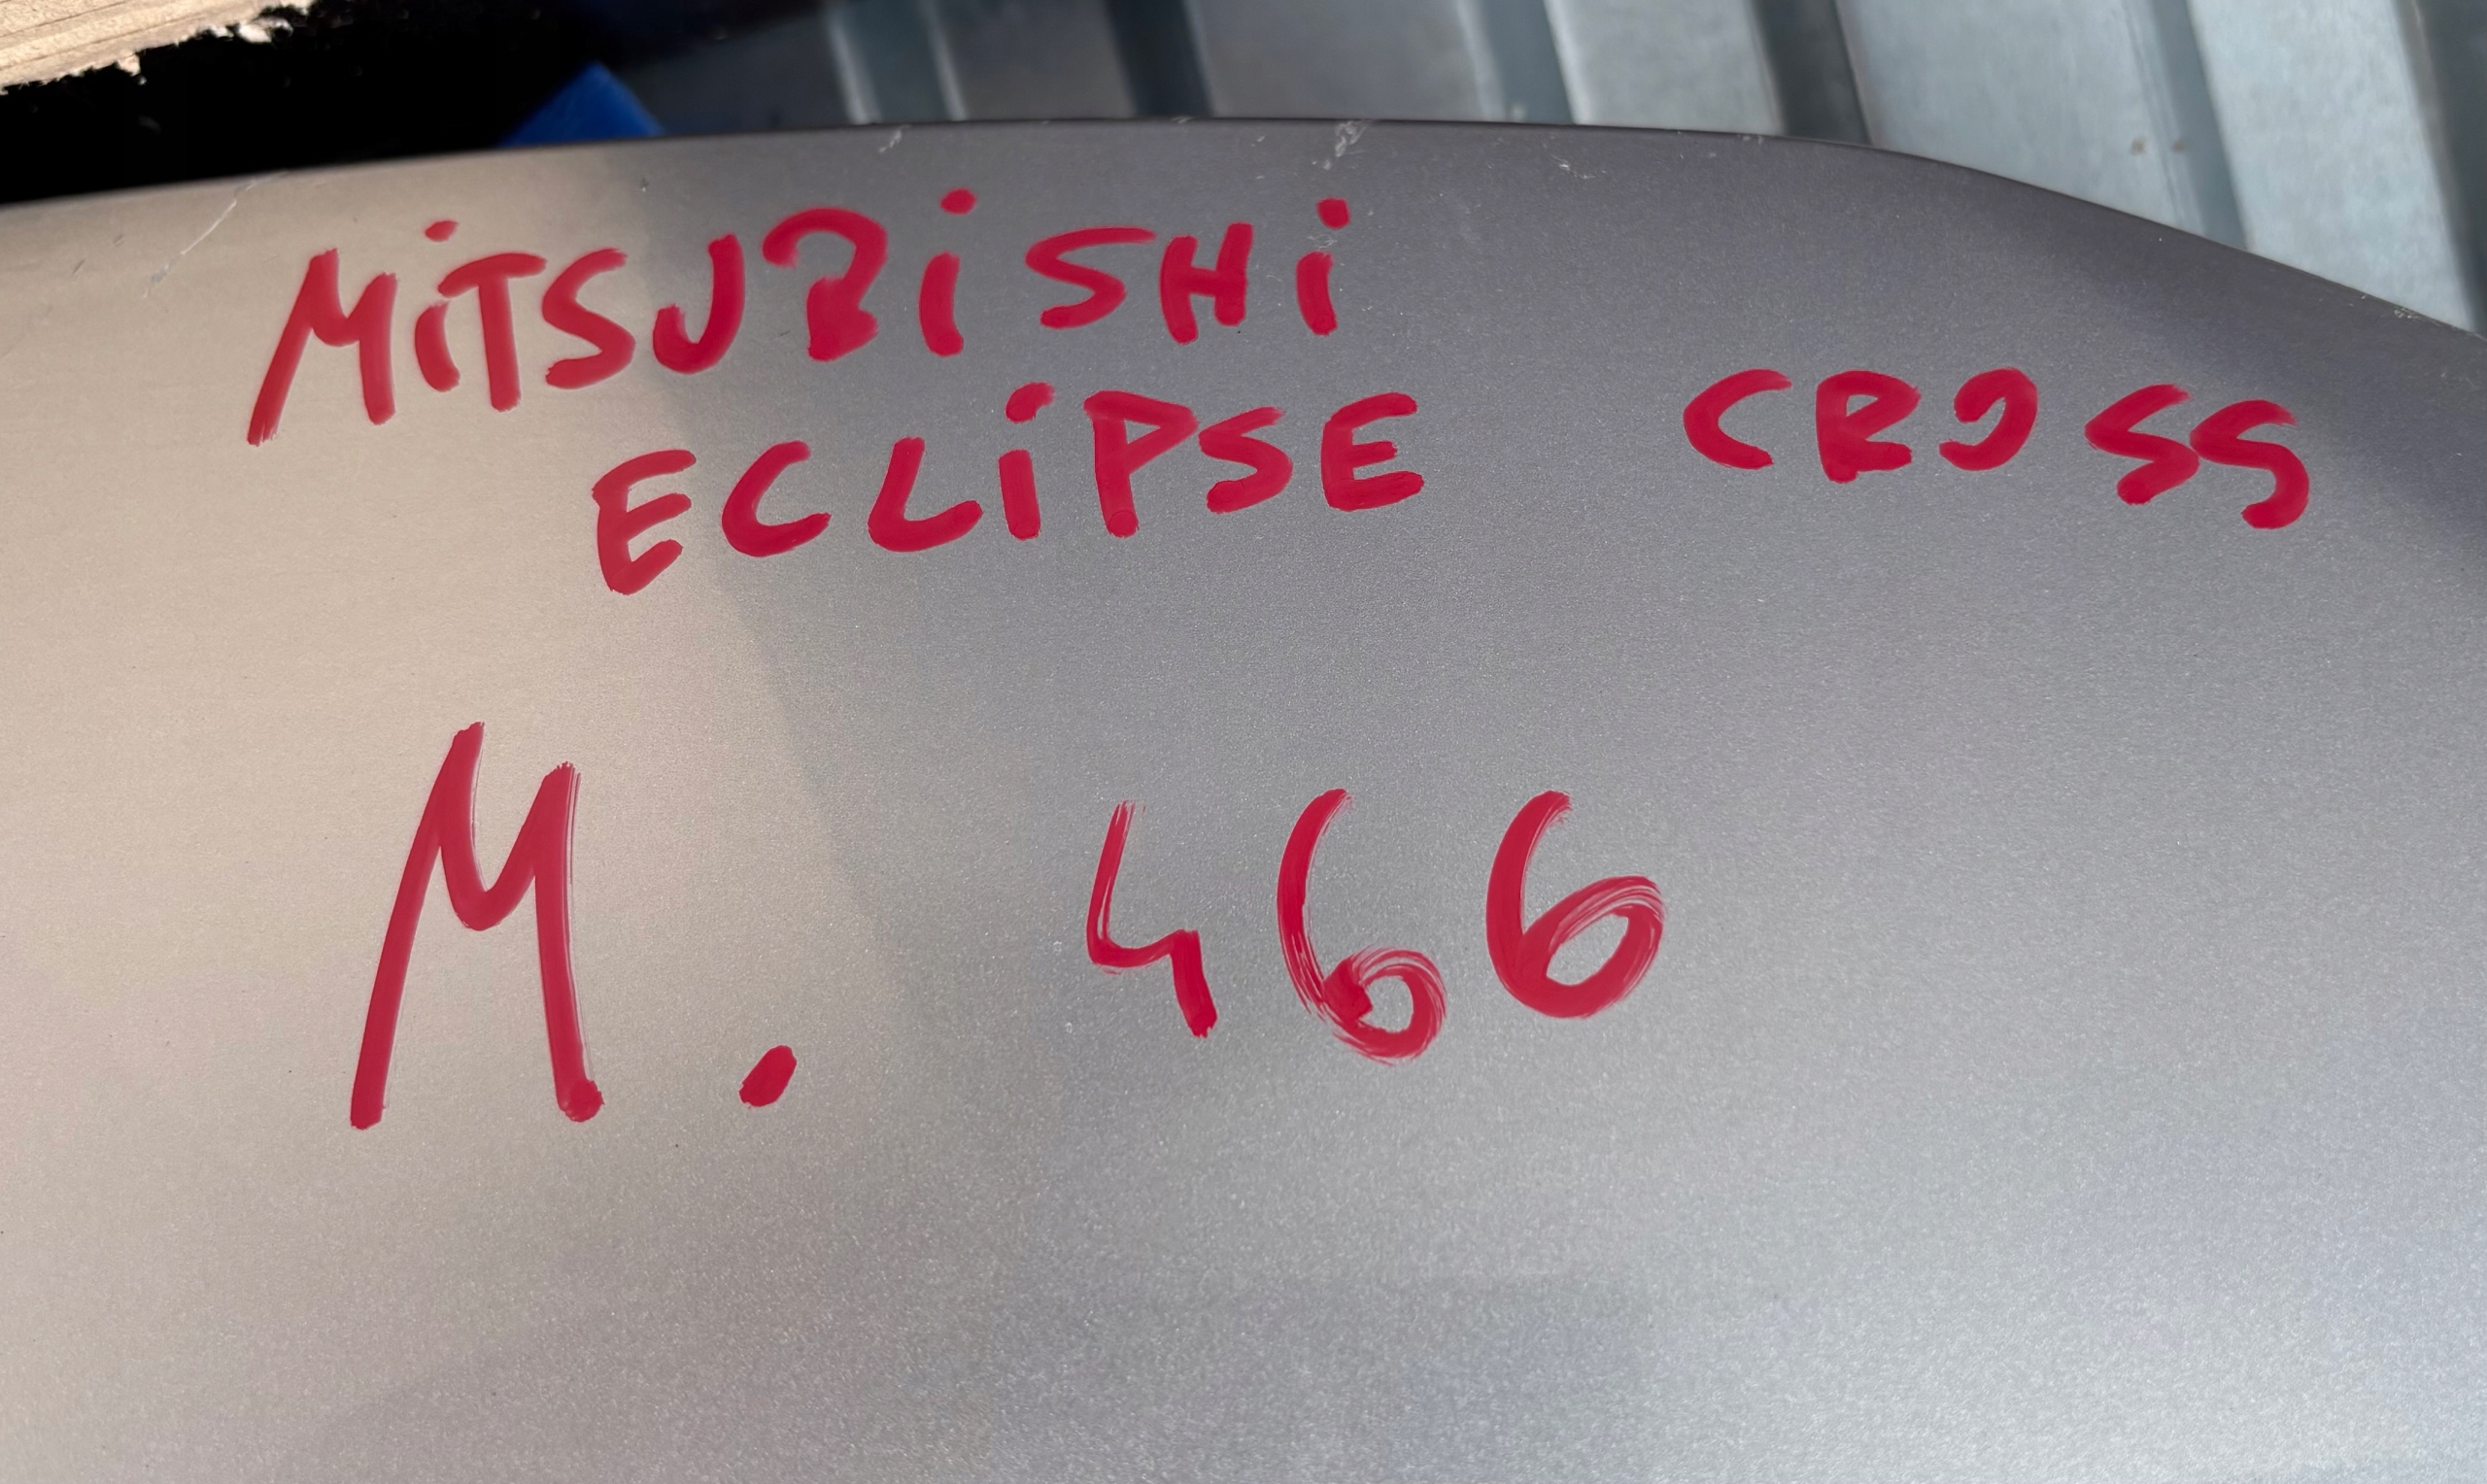 MiTSUBiSHi
ECLiPSE CROSS
M. 466